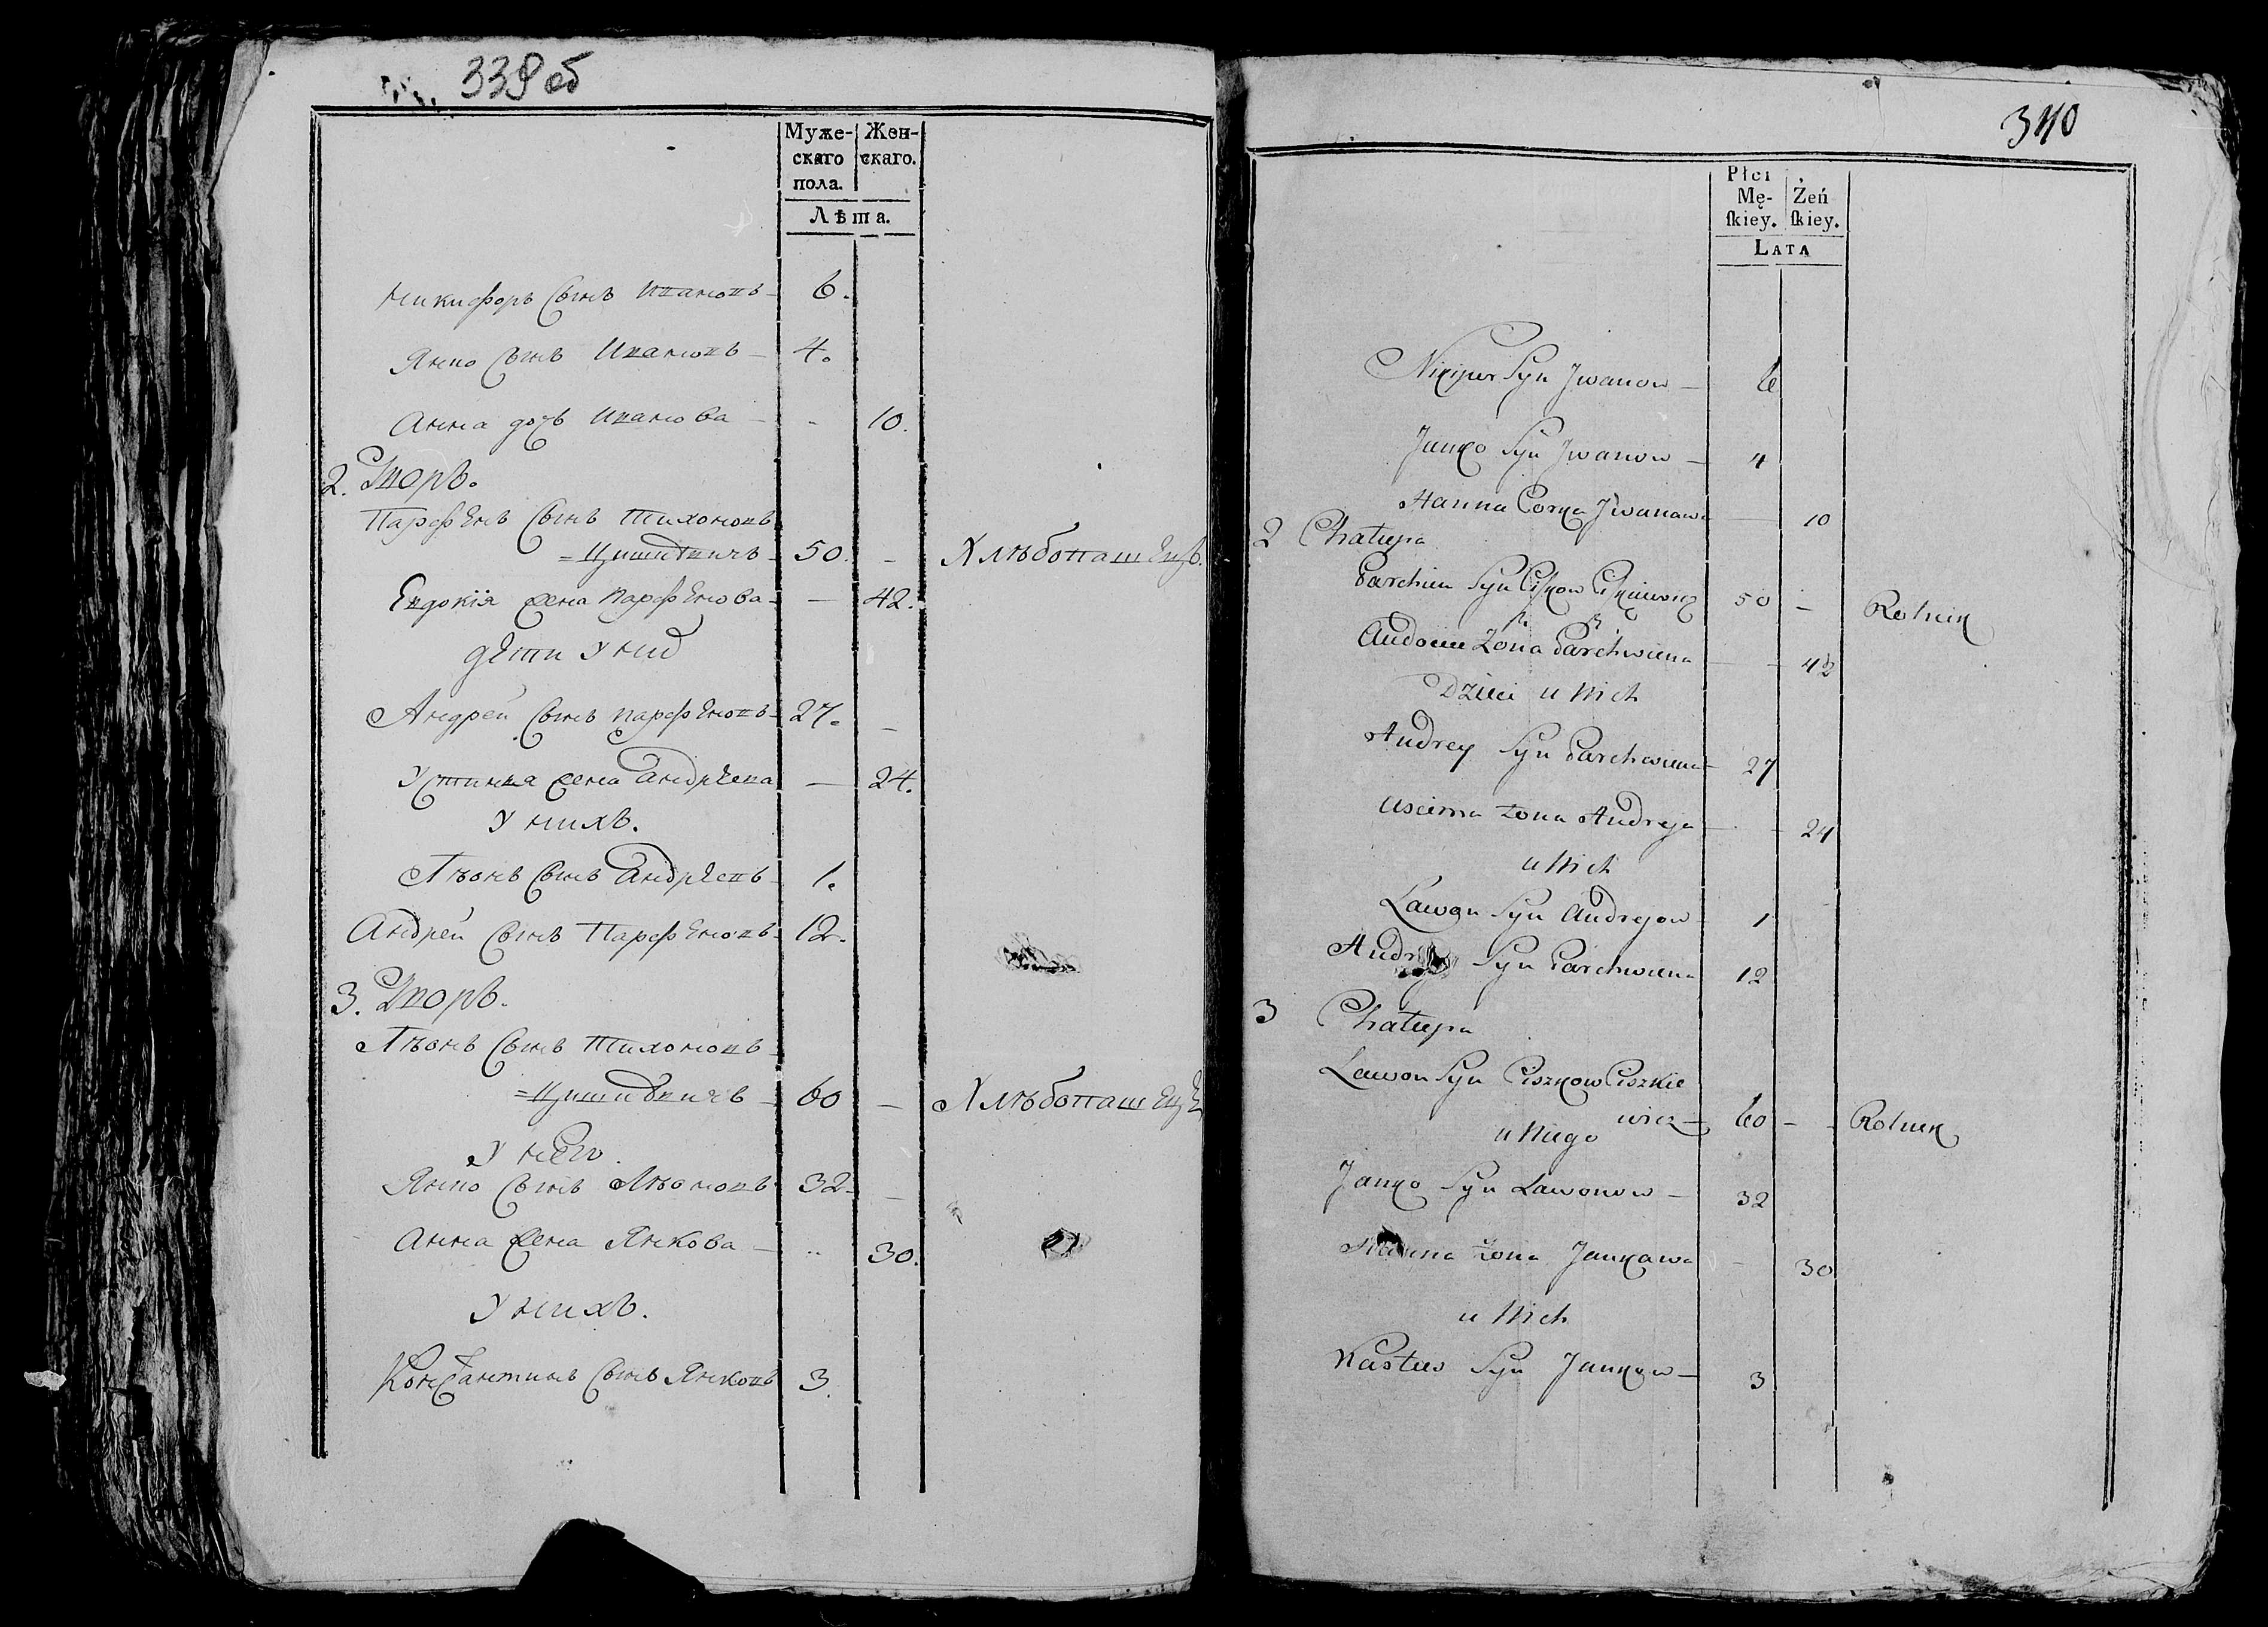 339 об
Муже-
скаго
пола.
Жен-
скаго.
Лѣта.
Никифоръ Сынъ Ивановъ - 6.
Янко Сынъ Ивановъ - 4.
Анна дочь Иванова - - 10.
2. Дворъ.
Парфенъ Сынъ Тихоновъ
=Цишкевичъ - 50. - Хлѣбопашецъ.
Евдокія жена Парфенова - - 42.
дети У них
Андрей Сынъ Парфеновъ - 27. -
Устинья жена Андреева - 24.
У нихъ.
Лѣонъ Сынъ Андреевъ - 1.
Андрей Сынъ Парфеновъ - 12.
3. Дворъ.
Лѣонъ Сынъ Тихоновъ -
=Цишкевичъ - 60 - Хлѣбопашецъ
У него.
Янко Сынъ Лѣоновъ 32. -
Анна жена Янкова - - 30.
У нихъ.
Константинъ Сынъ Янковъ 3.
340
Płci
Mę-
ſkiey.
Żeń
ſkiey.
LATA
Nikiper Syn Jwanow - 6
Janko Syn Jwanow - 4
Hanna Corka Jwanowa - 10
2 Chałupa
Parchien Syn Ciszkow Ciszkiewicz 50 - Rolnik
Audocia Zona Parchwiena - - 42
Dzieci u Nich
Andrey Syn Parchwiena - 27
Uscinia żona Andreja - - 24
u Nich
Lawon Syn Andrejow 1
Andrey Syn Parchwiena 12
3 Chałupa
Lawon Syn Ciszkow Ciszkie
wicz - 60 - - Rolnik
u Niego
Janko Syn Lawonow - 32
Hanna żona Jankowa - 30
u Nich
Kastuś Syn Jankow - 3